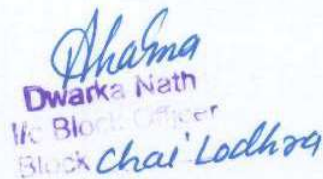 Dwarka Nath
I/c Block Officer
Block Chai Lodhra